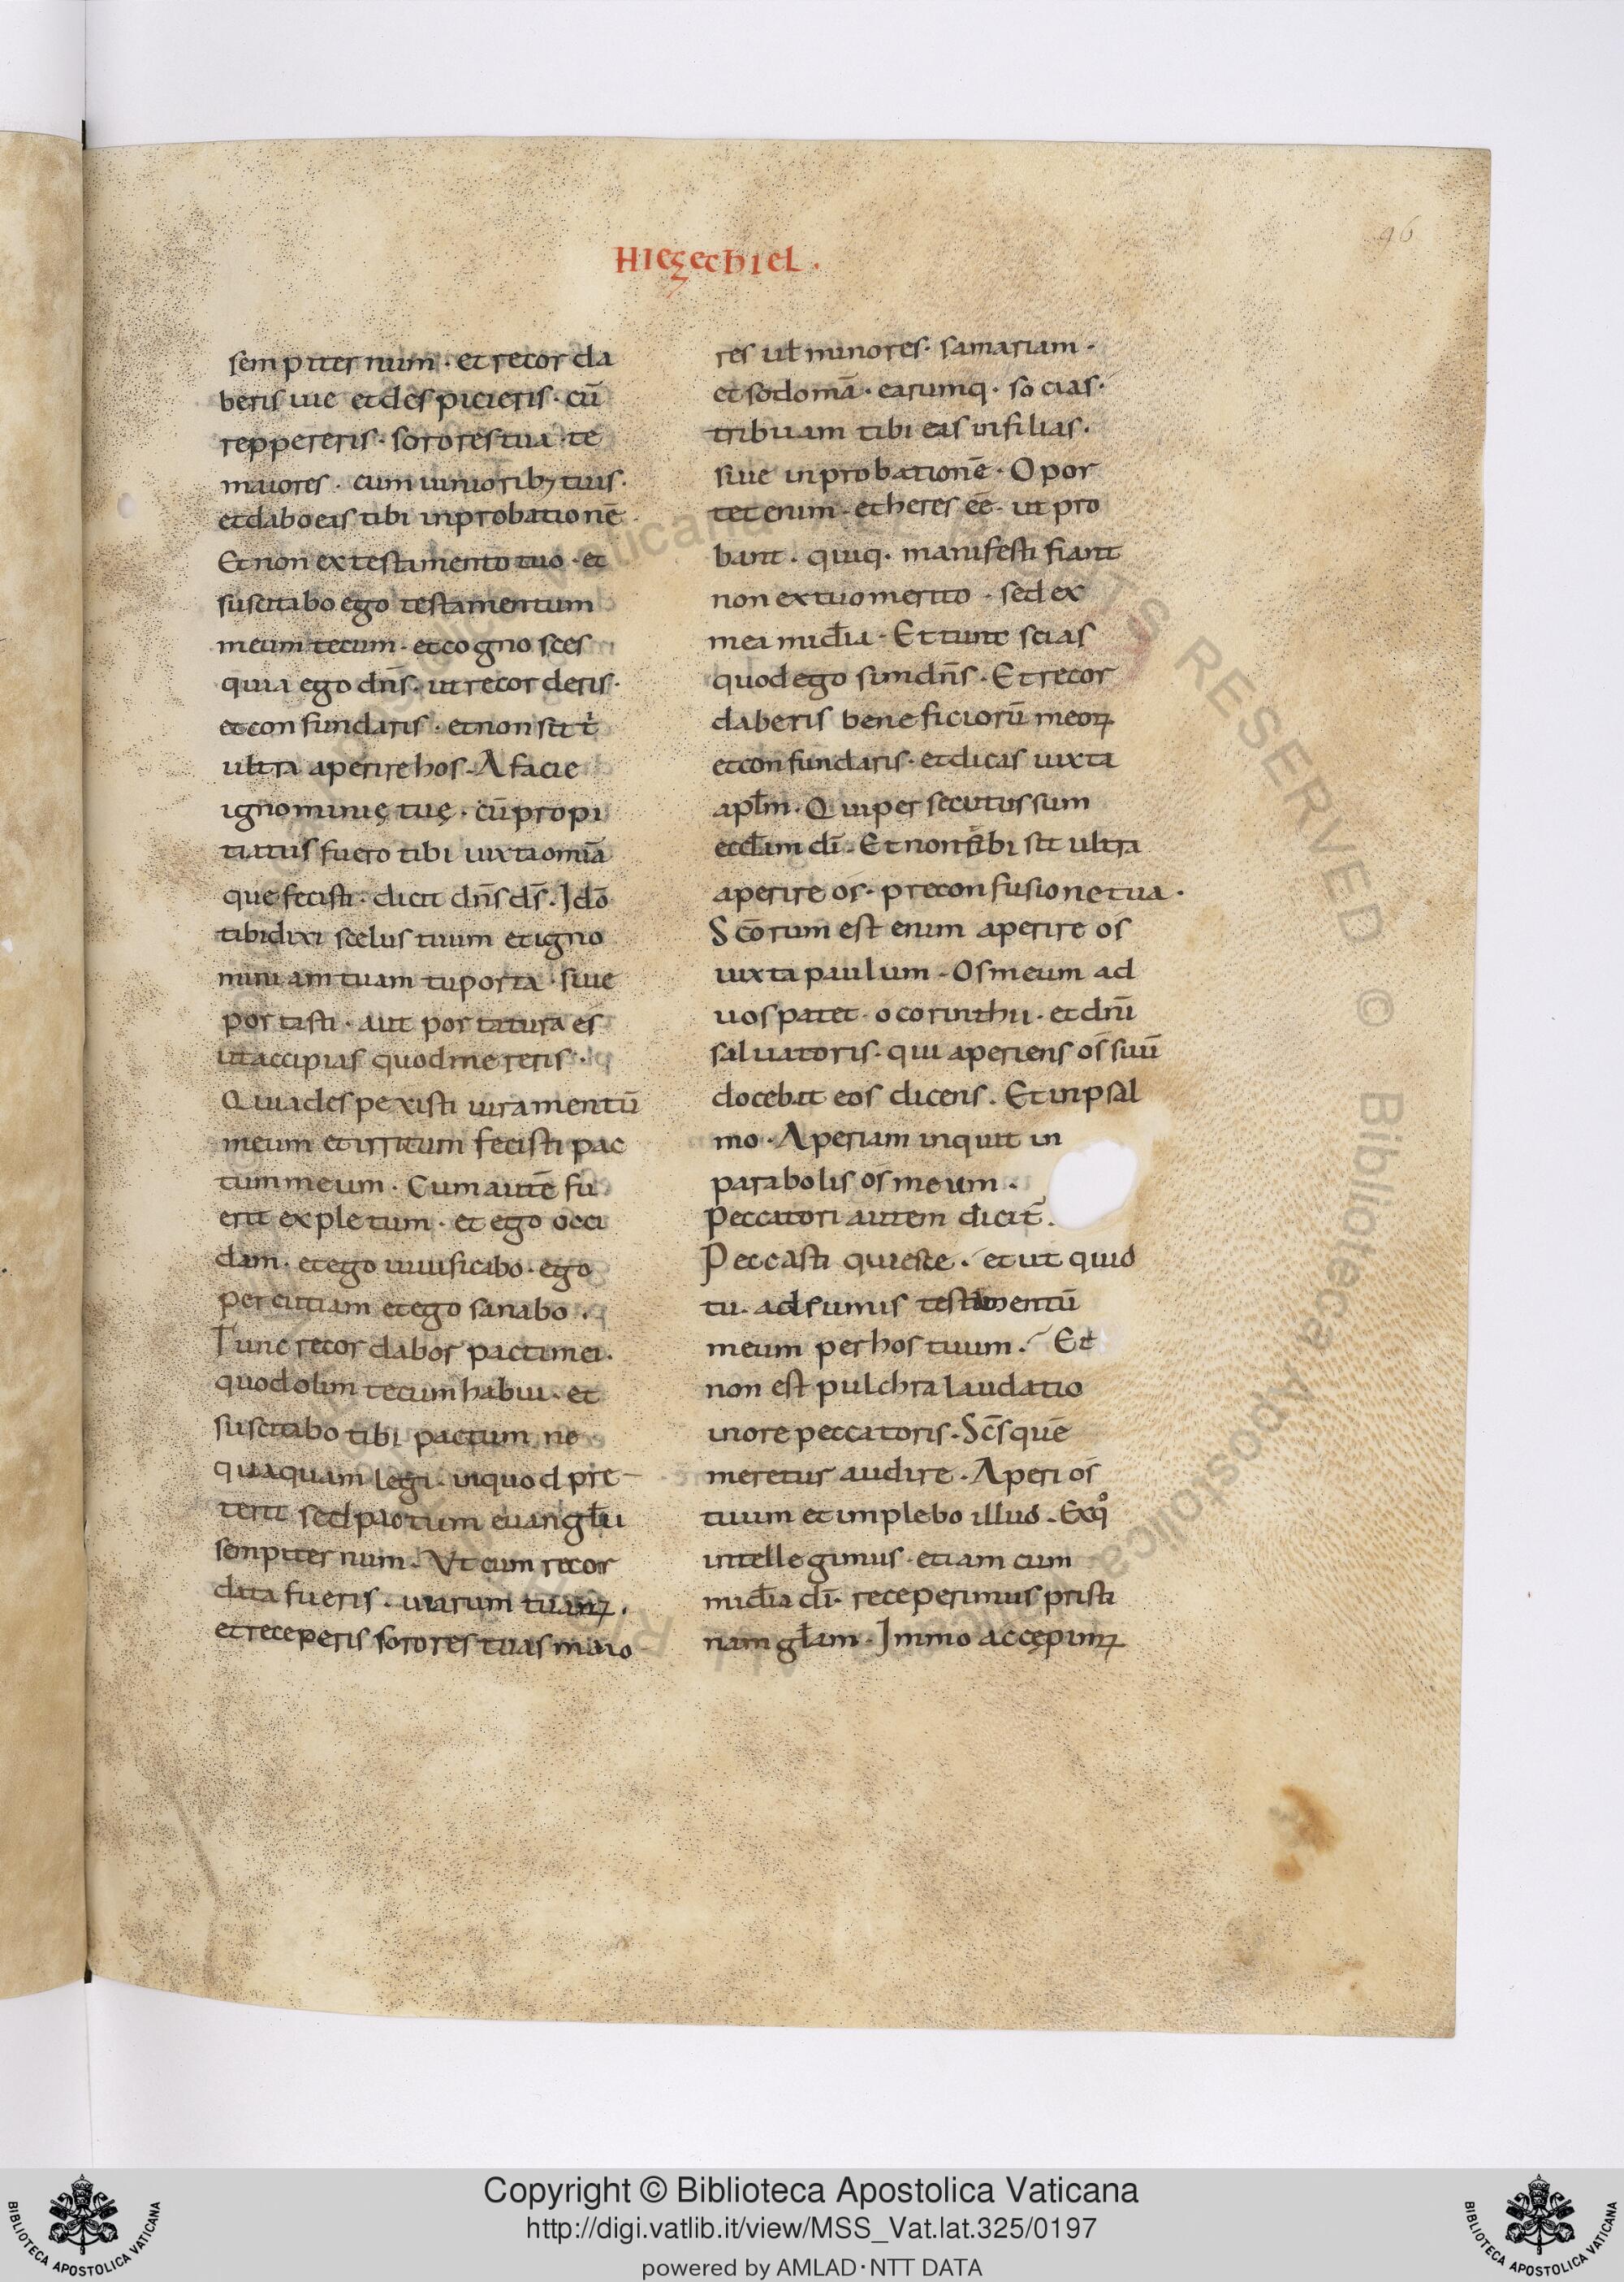 96
HIEZECHIEL.
sempiternum · et recorda
beris uię et despicieris · cū
reppereris · sorores tua · te
maiores · cum iunioribꝫ tuis ·
et dabo eas tibi in probationē
Et non ex testamento tuo · et
suscitabo ego testamentum
meum tecum · et cognosces
quia ego dn̄s · ut recorderis ·
et confundaris · et non sit t̄
ultra aperire hos · A facie
ignominię tuę · cū propi
tiatus fuero tibi iuxta omīa
que fecisti · dicit dn̄s ds̄ · Idō
tibi dixi scelus tuum et igno
miniam tuam tu porta · siue
portasti · aut portatura es
ut accipias quod mereris ·
Quia despexisti iuramentū
meum et irritum fecisti pac
tum meum · Cum autē fu
erit expletum · et ego occi
dam · et ego uiuificabo · ego
percutiam et ego sanabo ·
Tunc recordabor pacti mei ·
quod olim tecum habui · et
suscitabo tibi pactum ne
quaquam legi · in quod pre
terit sed pactum euanglii
sempiternum · Vt cum recor
data fueris · uiarum tuaꝝ ·
et receperis sorores tuas maio
res ul minores · samariam ·
et sodomā · earumq · socias ·
tribuam tibi eas in filias ·
siue in probationē · Opor
tet enim · et heres eē · ut pro
bati · quiq · manifesti fiant
non ex tuo merito · sed ex
mea mid̄ia · Et tunc scias
quod ego sim dn̄s · Et recor
daberis beneficiorū meoꝝ
et confundaris · et dicas iuxta
apłm · Qui persecutus sum
eccłam dī · Et non sit tibi sit ultra
aperire os · pre confusione tua ·
Scōrum est enim aperire os
iuxta paulum · Os meum ad
uos patet · o corinthii · et dnī
saluatoris · qui aperiens os suū
docebat eos dicens · Et in psal
mo · Aperiam inquit in
parabolis os meum ·
Peccatori autem dicit ·
Peccasti quiesce · et ut quid
tu · adsumis testamentū
meum per hos tuum · Et
non est pulchra laudatio
in ore peccatoris · Scs̄ quē
meretur audire · Aperi os
tuum et implebo illud · Ex qͦ
intellegimus · etiam cum
mid̄ia dī · receperimus pristi
nam głam · Immo accępimꝝ
Copyright © Biblioteca Apostolica Vaticana
http://digi.vatlib.it/view/MSS_Vat.lat.325/0197
powered by AMLAD·NTT DATA
BIBLIOTECA APOSTOLICA VATICANA
BIBLIOTECA APOSTOLICA VATICANA